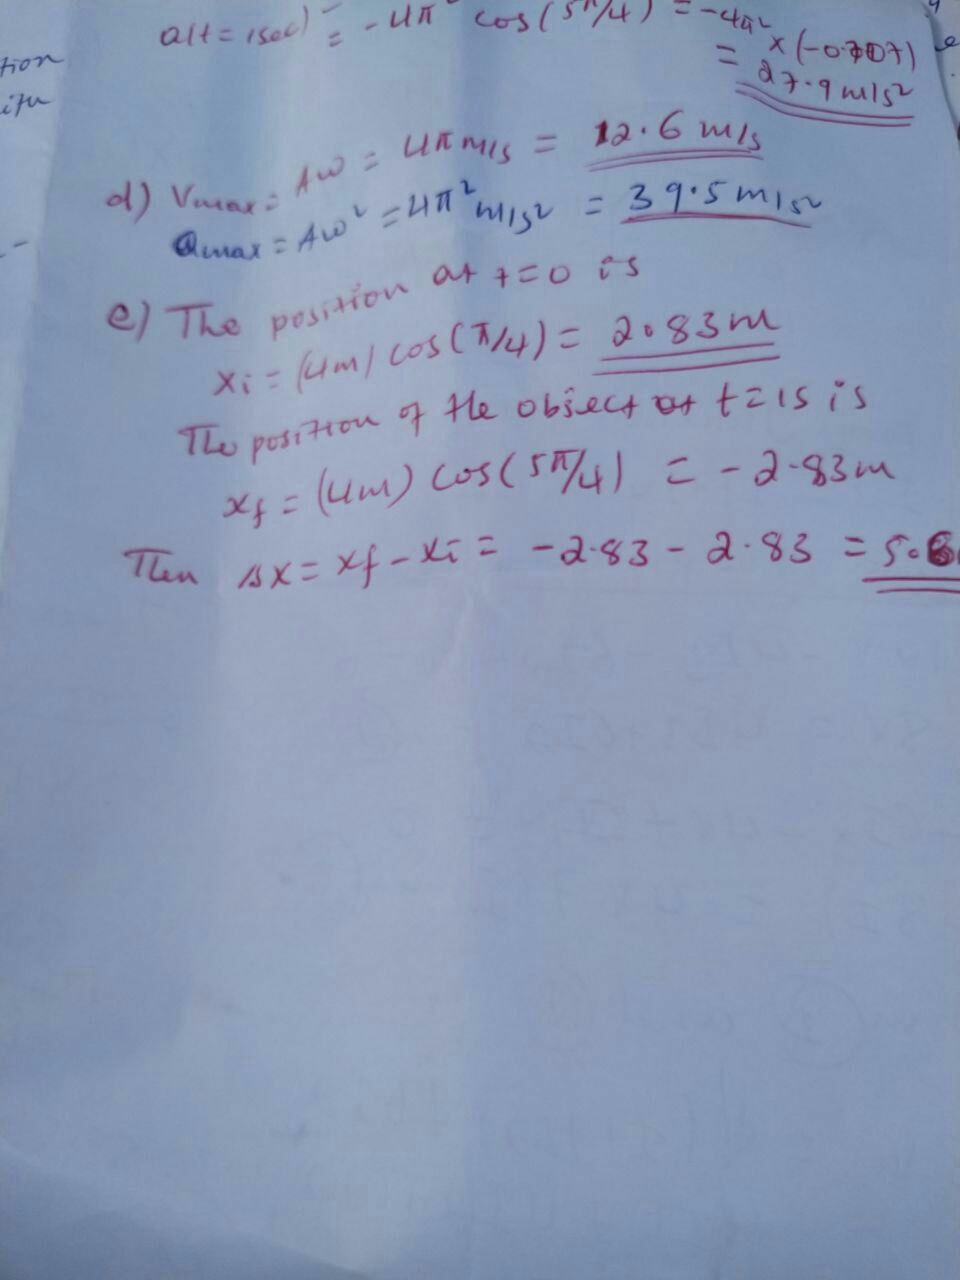 tion
a(t = 1sec) = -4π² cos(5π/4) = -4π² × (-0.707)
= 27.9 m/s²
d) Vmax = Aω = 4π m/s = 12.6 m/s
amax = Aω² = 4π² m/s² = 39.5 m/s²
e) The position at t=0 is
xi = (4m) cos(π/4) = 2.83m
The position of the object at t=1s is
xf = (4m) cos(5π/4) = -2.83m
Then Δx = xf - xi = -2.83 - 2.83 = 5.6